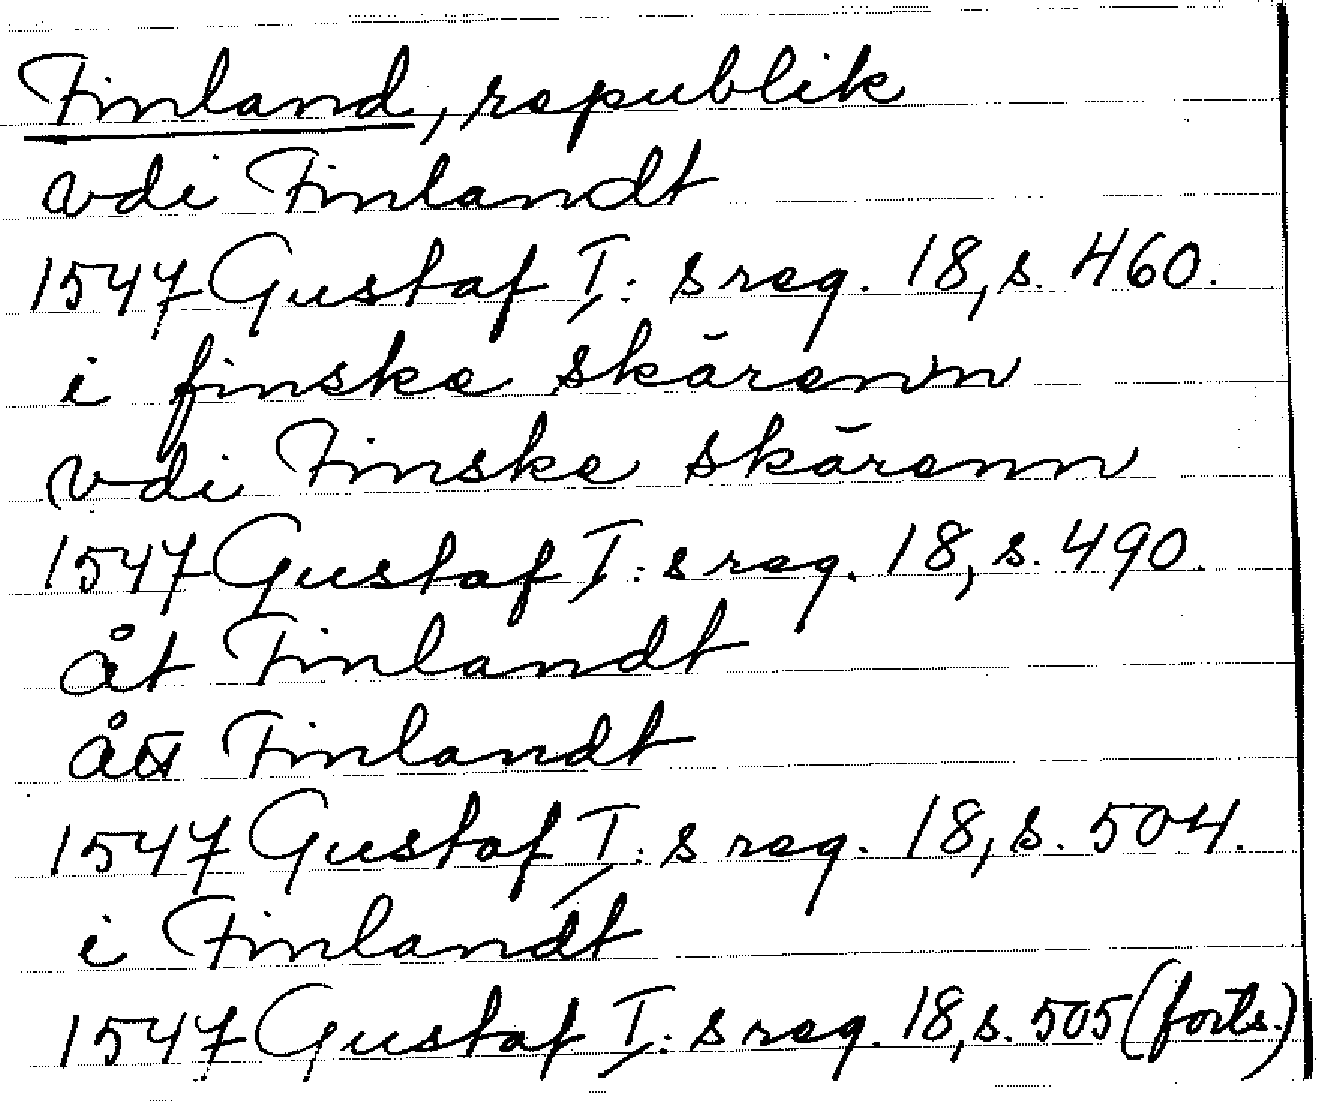 Finland, republik
vdi Finlandt
1547 Gustaf I:s reg. 18, s. 460.
i finske skärenn
vdi Finske skärenn
1547 Gustaf I:s reg. 18, s. 490.
åt Finlandt
ått Finlandt
1547 Gustaf I:s reg. 18, s. 504.
i Finlandt
1547 Gustaf I:s reg. 18, s. 505 (forts.)